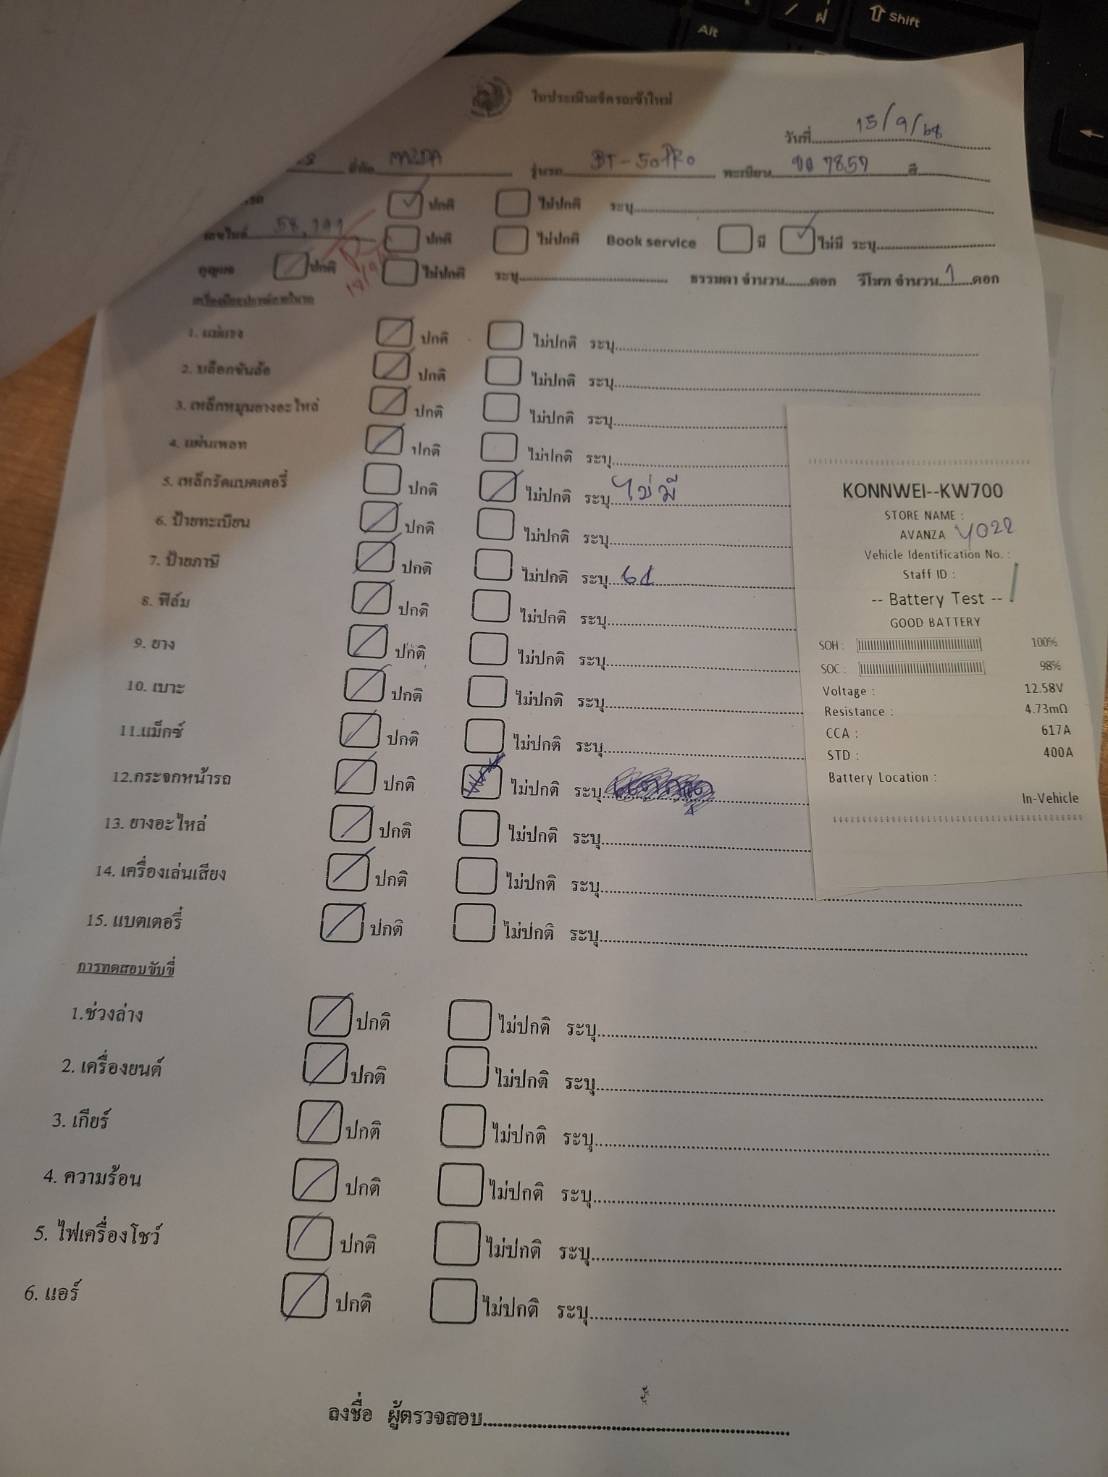 Alt
Shift
ใบประเมินสภาพรถเข้าใหม่
วันที่ 15/9/68
ยี่ห้อ MAZDA รุ่นรถ BT-50 PRO ทะเบียน 7859 สี
ปกติ ไม่ปกติ ระบุ
เลขไมล์ 58,191 ปกติ ไม่ปกติ Book service มี ไม่มี ระบุ
กุญแจ ปกติ ไม่ปกติ ระบุ ธรรมดา จำนวน ดอก รีโมท จำนวน 1 ดอก
1. แม่แรง ปกติ ไม่ปกติ ระบุ
2. บล็อกขันล้อ ปกติ ไม่ปกติ ระบุ
3. เหล็กหมุนยางอะไหล่ ปกติ ไม่ปกติ ระบุ
4. แผ่นเพลท ปกติ ไม่ปกติ ระบุ
5. เหล็กรัดแบตเตอรี่ ปกติ ไม่ปกติ ระบุ ไม่มี
6. ป้ายทะเบียน ปกติ ไม่ปกติ ระบุ
7. ป้ายภาษี ปกติ ไม่ปกติ ระบุ
8. ฟิล์ม ปกติ ไม่ปกติ ระบุ
9. ยาง ปกติ ไม่ปกติ ระบุ
10. เบาะ ปกติ ไม่ปกติ ระบุ
11.แม็กซ์ ปกติ ไม่ปกติ ระบุ
12.กระจกหน้ารถ ปกติ ไม่ปกติ ระบุ
13. ยางอะไหล่ ปกติ ไม่ปกติ ระบุ
14. เครื่องเล่นเสียง ปกติ ไม่ปกติ ระบุ
15. แบตเตอรี่ ปกติ ไม่ปกติ ระบุ
การทดสอบขับขี่
1.ช่วงล่าง ปกติ ไม่ปกติ ระบุ
2. เครื่องยนต์ ปกติ ไม่ปกติ ระบุ
3. เกียร์ ปกติ ไม่ปกติ ระบุ
4. ความร้อน ปกติ ไม่ปกติ ระบุ
5. ไฟเครื่องโชว์ ปกติ ไม่ปกติ ระบุ
6. แอร์ ปกติ ไม่ปกติ ระบุ
ลงชื่อ ผู้ตรวจสอบ
KONNWEI--KW700
STORE NAME :
AVANZA
Vehicle Identification No. :
Staff ID :
-- Battery Test --
GOOD BATTERY
SOH : 100%
SOC : 98%
Voltage : 12.58V
Resistance : 4.73mΩ
CCA : 617A
STD : 400A
Battery Location :
In-Vehicle